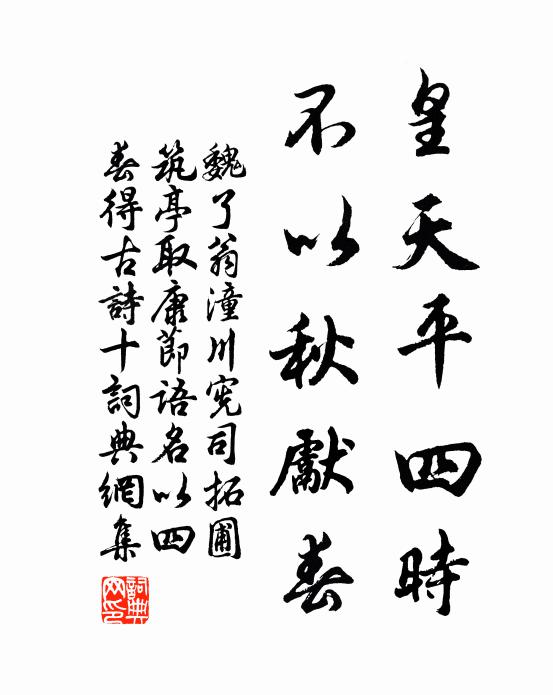 皇天平四時
不以秋獻春
魏了翁潼川憲司拓圃
筑亭取康節語名以四
春得古詩十詞典網集
詞典网印